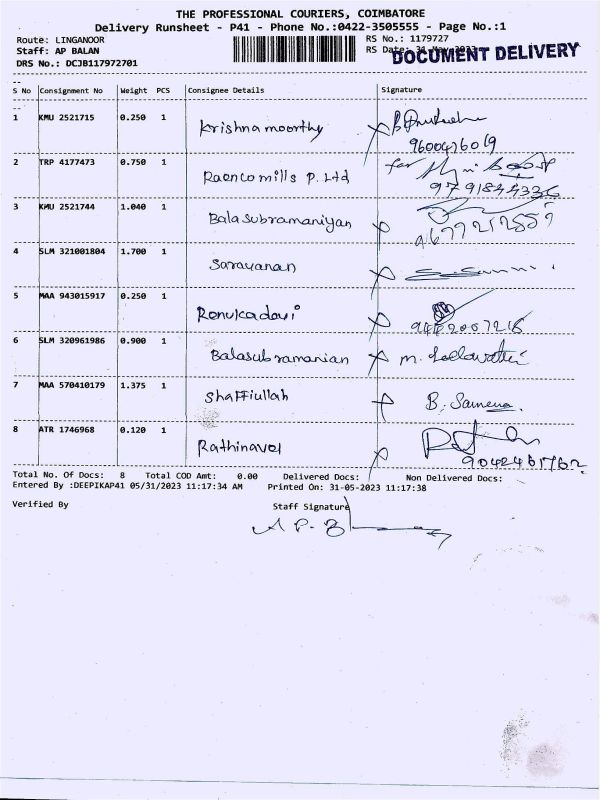 THE PROFESSIONAL COURIERS, COIMBATORE
Delivery Runsheet - P41 - Phone No.:0422-3505555 - Page No.:1
Route: LINGANOOR RS No.: 1179727
Staff: AP BALAN RS Date: 31-May-2023
DRS No.: DCJB117972701 DOCUMENT DELIVERY
S No Consignment No Weight PCS Consignee Details Signature
1 KMU 2521715 0.250 1 Krishnamoorthy
9600426019
2 TRP 4177473 0.750 1 mills P. Ltd for
9791844336
3 KMU 2521744 1.040 1 Balasubramaniyan
9677212559
4 SLM 321001804 1.700 1 Saravanan
5 MAA 943015917 0.250 1 Renukadevi
9442007216
6 SLM 320961986 0.900 1 Balasubramanian M.
7 MAA 570410179 1.375 1 Shaffiullah B. Sameena
8 ATR 1746968 0.120 1 Rathinavel
9042461762
Total No. Of Docs: 8 Total COD Amt: 0.00 Delivered Docs: Non Delivered Docs:
Entered By :DEEPIKAP41 05/31/2023 11:17:34 AM Printed On: 31-05-2023 11:17:38
Verified By Staff Signature
A P. B